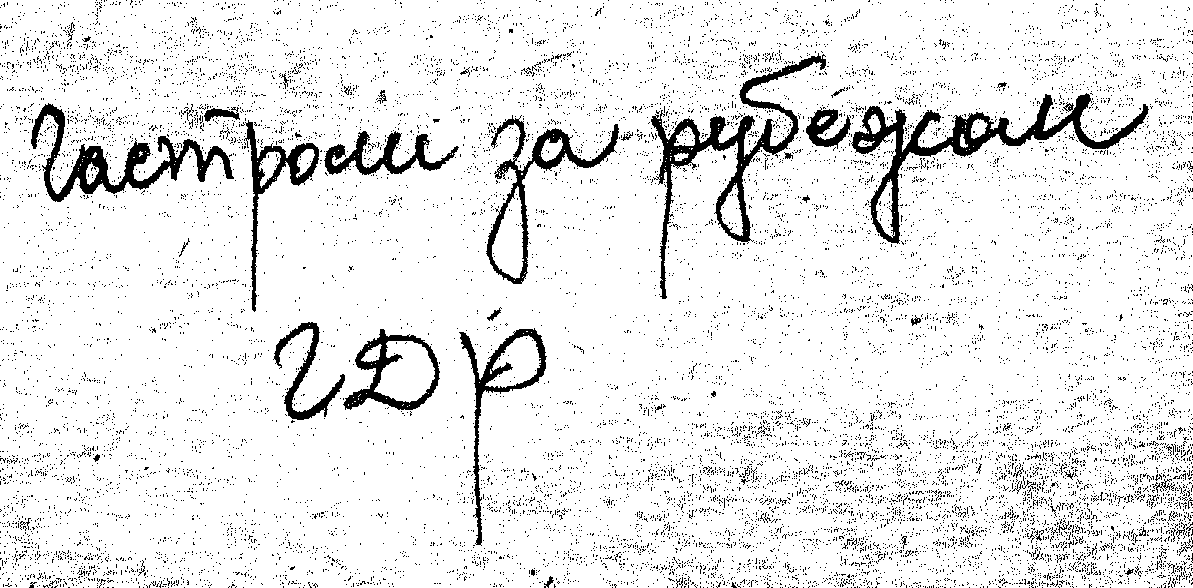 Гастроли за рубежом
ГДР